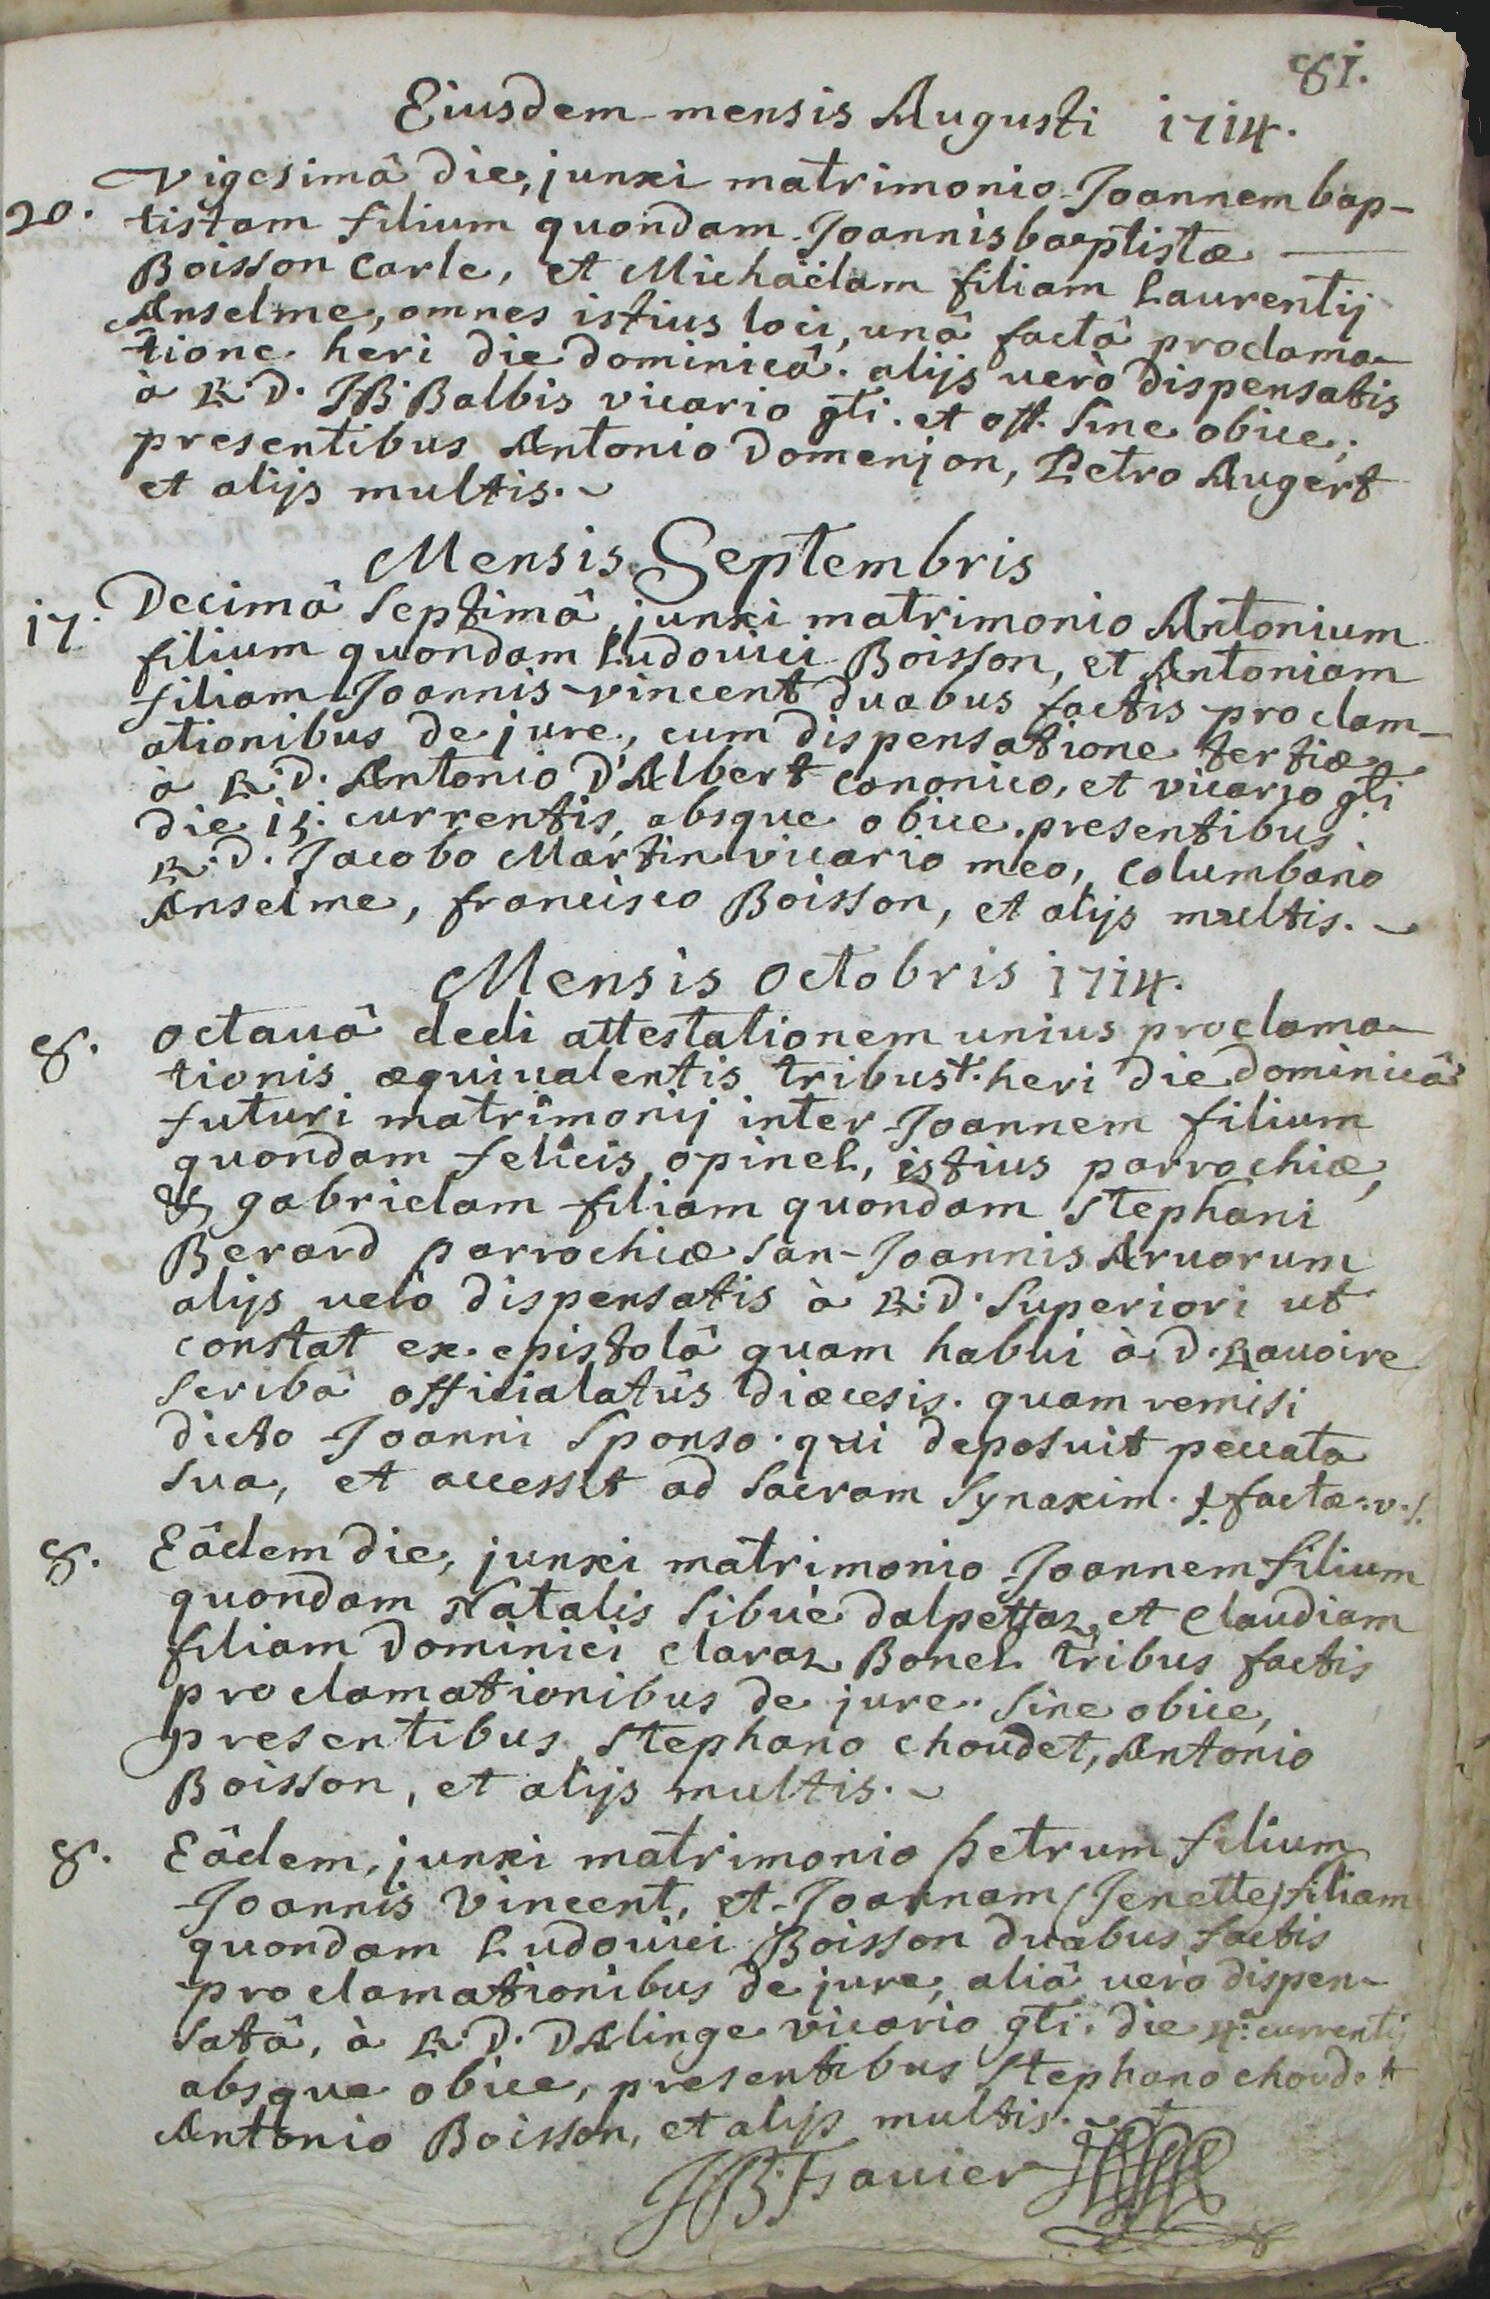 81.
Eiusdem mensis Augusti 1714.
20. Vigesimâ die, junxi matrimonio Joannem bap-
tistam filium quondam Joannisbaptistæ
Boisson Carle, et Michaëlam filiam Laurentij
Anselme, omnes istius loci, unâ factâ proclama-
tione heri die dominicâ. alijs uerò dispensatis
à R.D. JB Balbis vicario gti. et off. sine obice,
presentibus Antonio Domenjon, Petro Augert
et alijs multis.
Mensis Septembris
17. Decimâ septimâ, junxi matrimonio Antonium
filium quondam Ludouici Boisson, et Antoniam
filiam Joannis vincent duabus factis proclam-
ationibus de jure, cum dispensatione tertiæ
à R.D. Antonio D'Albert canonico, et vicario gti
die 15. currentis, absque obice. presentibus
R.D. Jacobo Martin vicario meo, columbano
Anselme, francisco Boisson, et alijs multis.
Mensis octobris 1714.
8. octauâ dedi attestationem unius proclama-
tionis æquiualentis tribus +. heri die dominicâ
futuri matrimonij inter Joannem filium
quondam felicis opinel, istius parrochiæ,
& gabrielam filiam quondam Stephani
Berard parrochiæ San-Joannis Aruorum
alijs uerò dispensatis à R.D. Superiori ut
constat ex epistolâ quam habui à D. Rauoire
scribâ officialatûs diœcesis. quam remisi
dicto Joanni sponso. qui deposuit peccata
sua, et accessit ad sacram synaxim. + factæ. v. s.
8. Eâdem die, junxi matrimonio Joannem filium
quondam Natalis Sibué dalpettaz, et claudiam
filiam Dominici claraz Bonel tribus factis
proclamationibus de jure. sine obice,
presentibus Stephano choudet, Antonio
Boisson, et alijs multis.
8. Eâdem, junxi matrimonio petrum filium
Joannis Vincent, et Joannam (Jenette) filiam
quondam Ludouici Boisson duabus factis
proclamationibus de jure, aliâ uerò dispen-
satâ, à R.D. DAlinge vicario gti. die 4. currentis
absque obice, presentibus Stephano choudet
Antonio Boisson, et alijs multis.